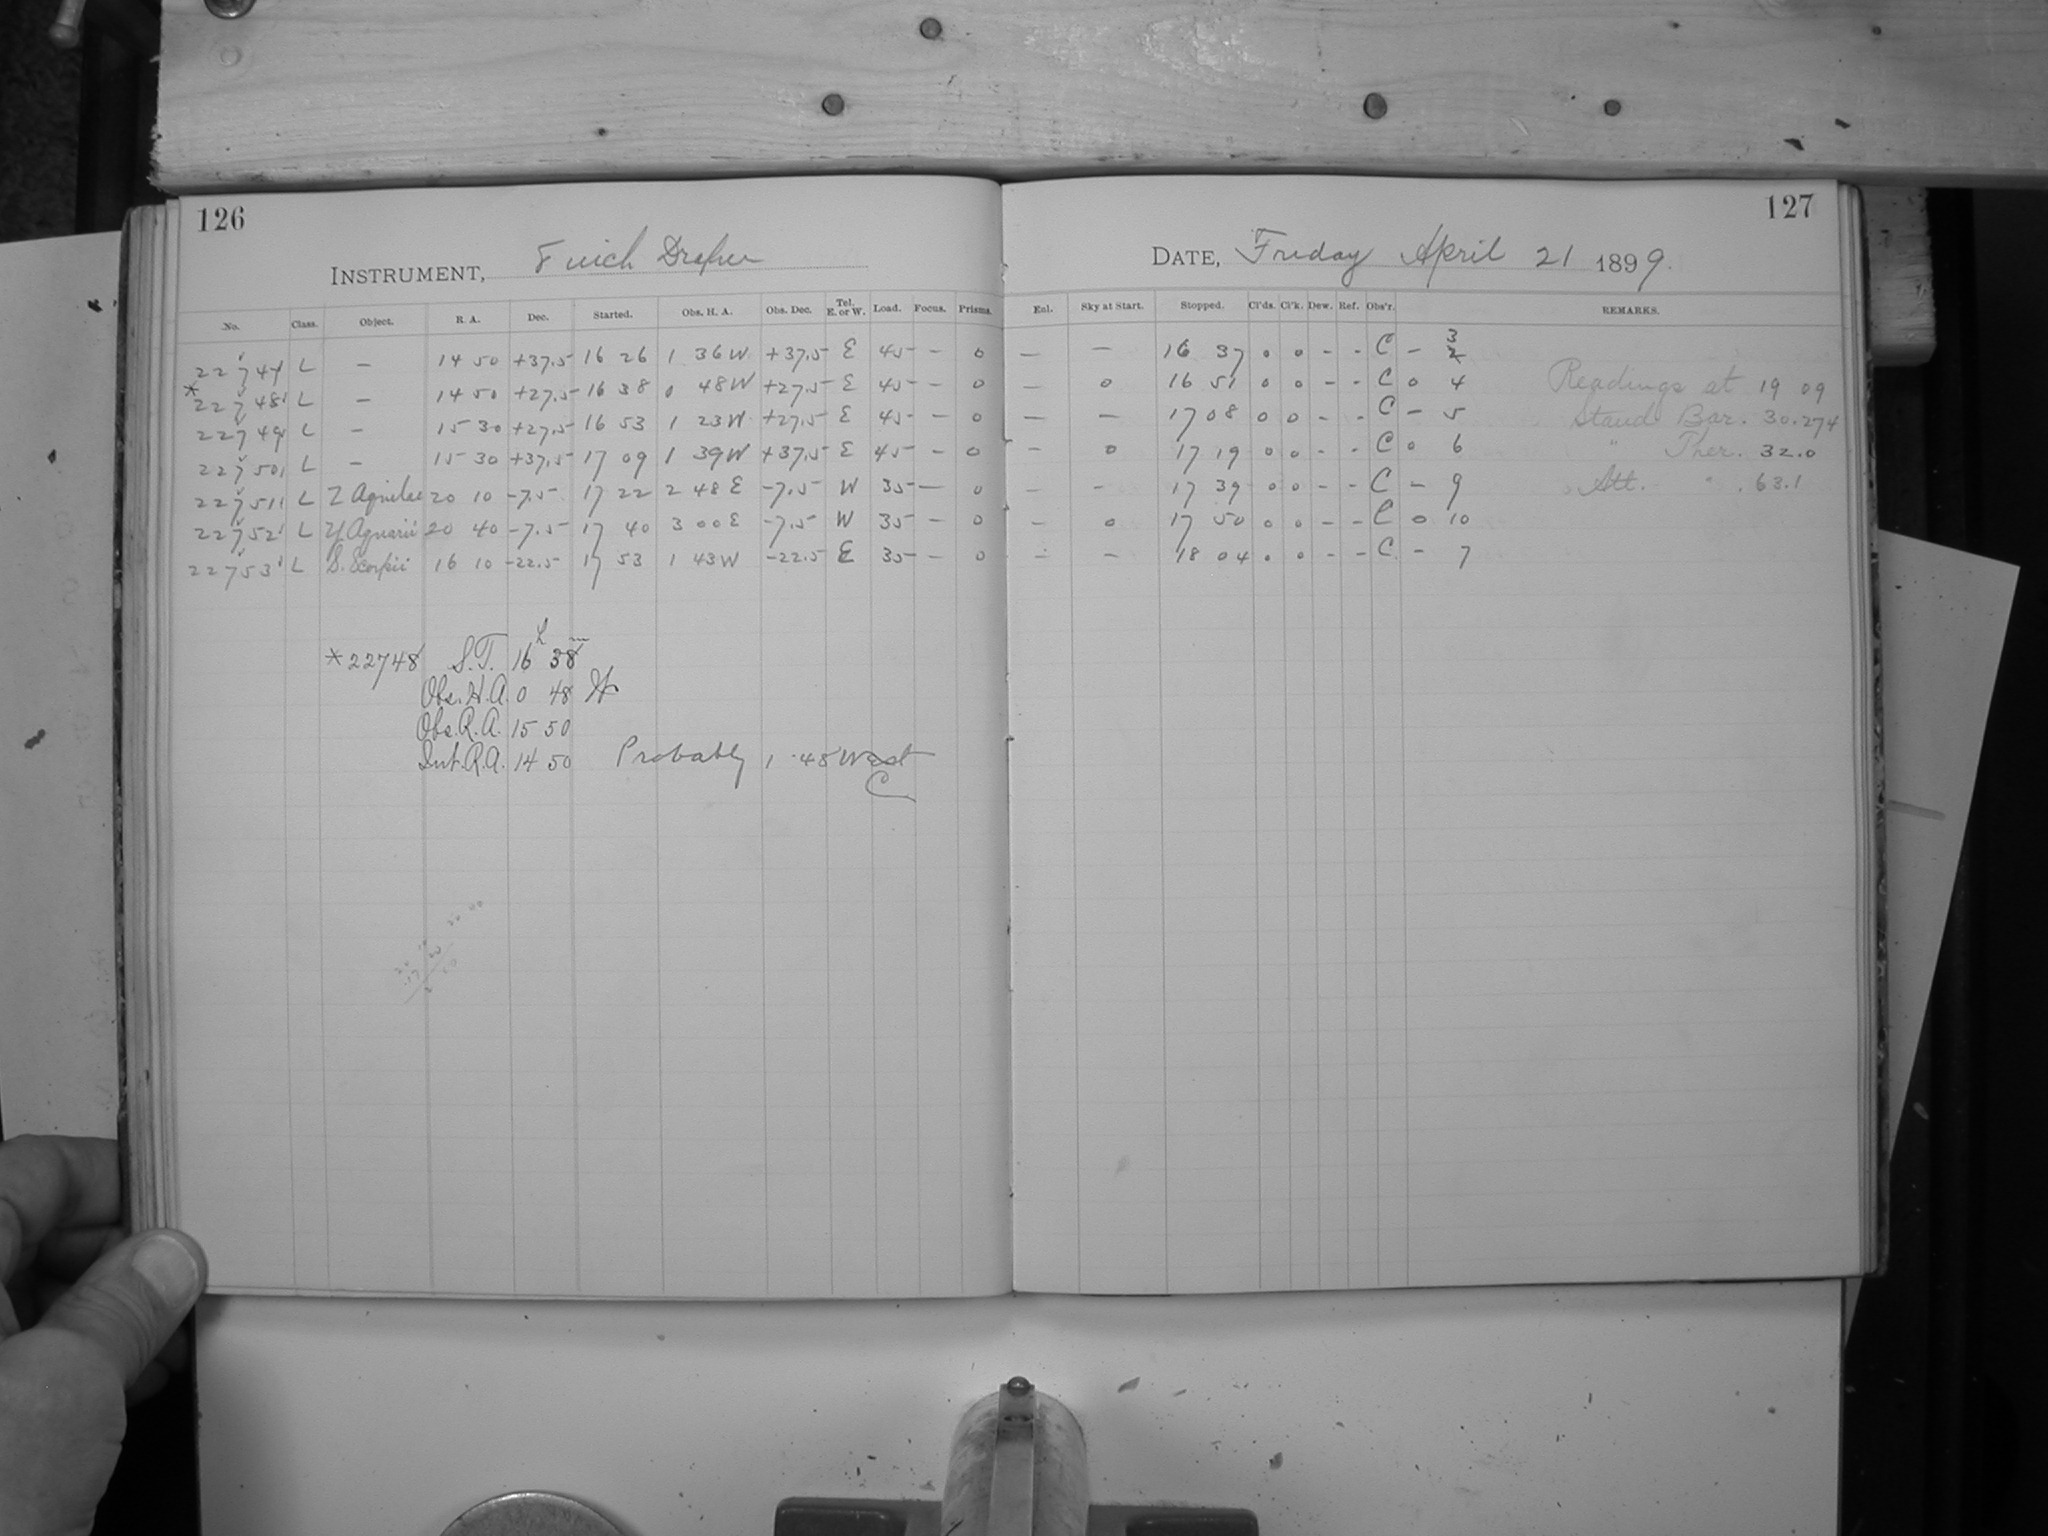 126
127
INSTRUMENT, 8 inch Draper
DATE, Friday April 21 1899.
No. Class. Object. R. A. Dec. Started. Obs. H. A. Obs. Dec. Tel. E. or W. Load. Focus. Prisms. Enl. Sky at Start. Stopped. Cl'ds. Cl'k. Dew. Ref. Obs'r. REMARKS.
22747 L — 14 50 +37.5 16 26 1 36 W +37.5 E 45 — 0 — — 16 37 0 0 - - C - 3 2
*22748 L — 14 50 +27.5 16 38 0 48 W +27.5 E 45 — 0 — 0 16 51 0 0 - - C 0 4 Readings at 19 09
22749 L — 15 30 +27.5 16 53 1 23 W +27.5 E 45 — 0 — — 17 08 0 0 - - C - 5 Stand Bar. 30.274
22750 L — 15 30 +37.5 17 09 1 39 W +37.5 E 45 — 0 — 0 17 19 0 0 - - C 0 6 " Ther. 32.0
22751 L Z Aquilae 20 10 -7.5 17 22 2 48 E -7.5 W 35 — 0 — — 17 39 0 0 - - C - 9 Att. " . 63.1
22752 L Y Aquarii 20 40 -7.5 17 40 3 00 E -7.5 W 35 — 0 — 0 17 50 0 0 - - C 0 10
22753 L S. Scorpii 16 10 -22.5 17 53 1 43 W -22.5 E 35 — 0 — — 18 04 0 0 - - C - 7
*22748 S.T. 16h 38m
Obs. H.A. 0 48 W
Obs. R.A. 15 50
Int. R.A. 14 50 Probably 1 48 West
C
20 40